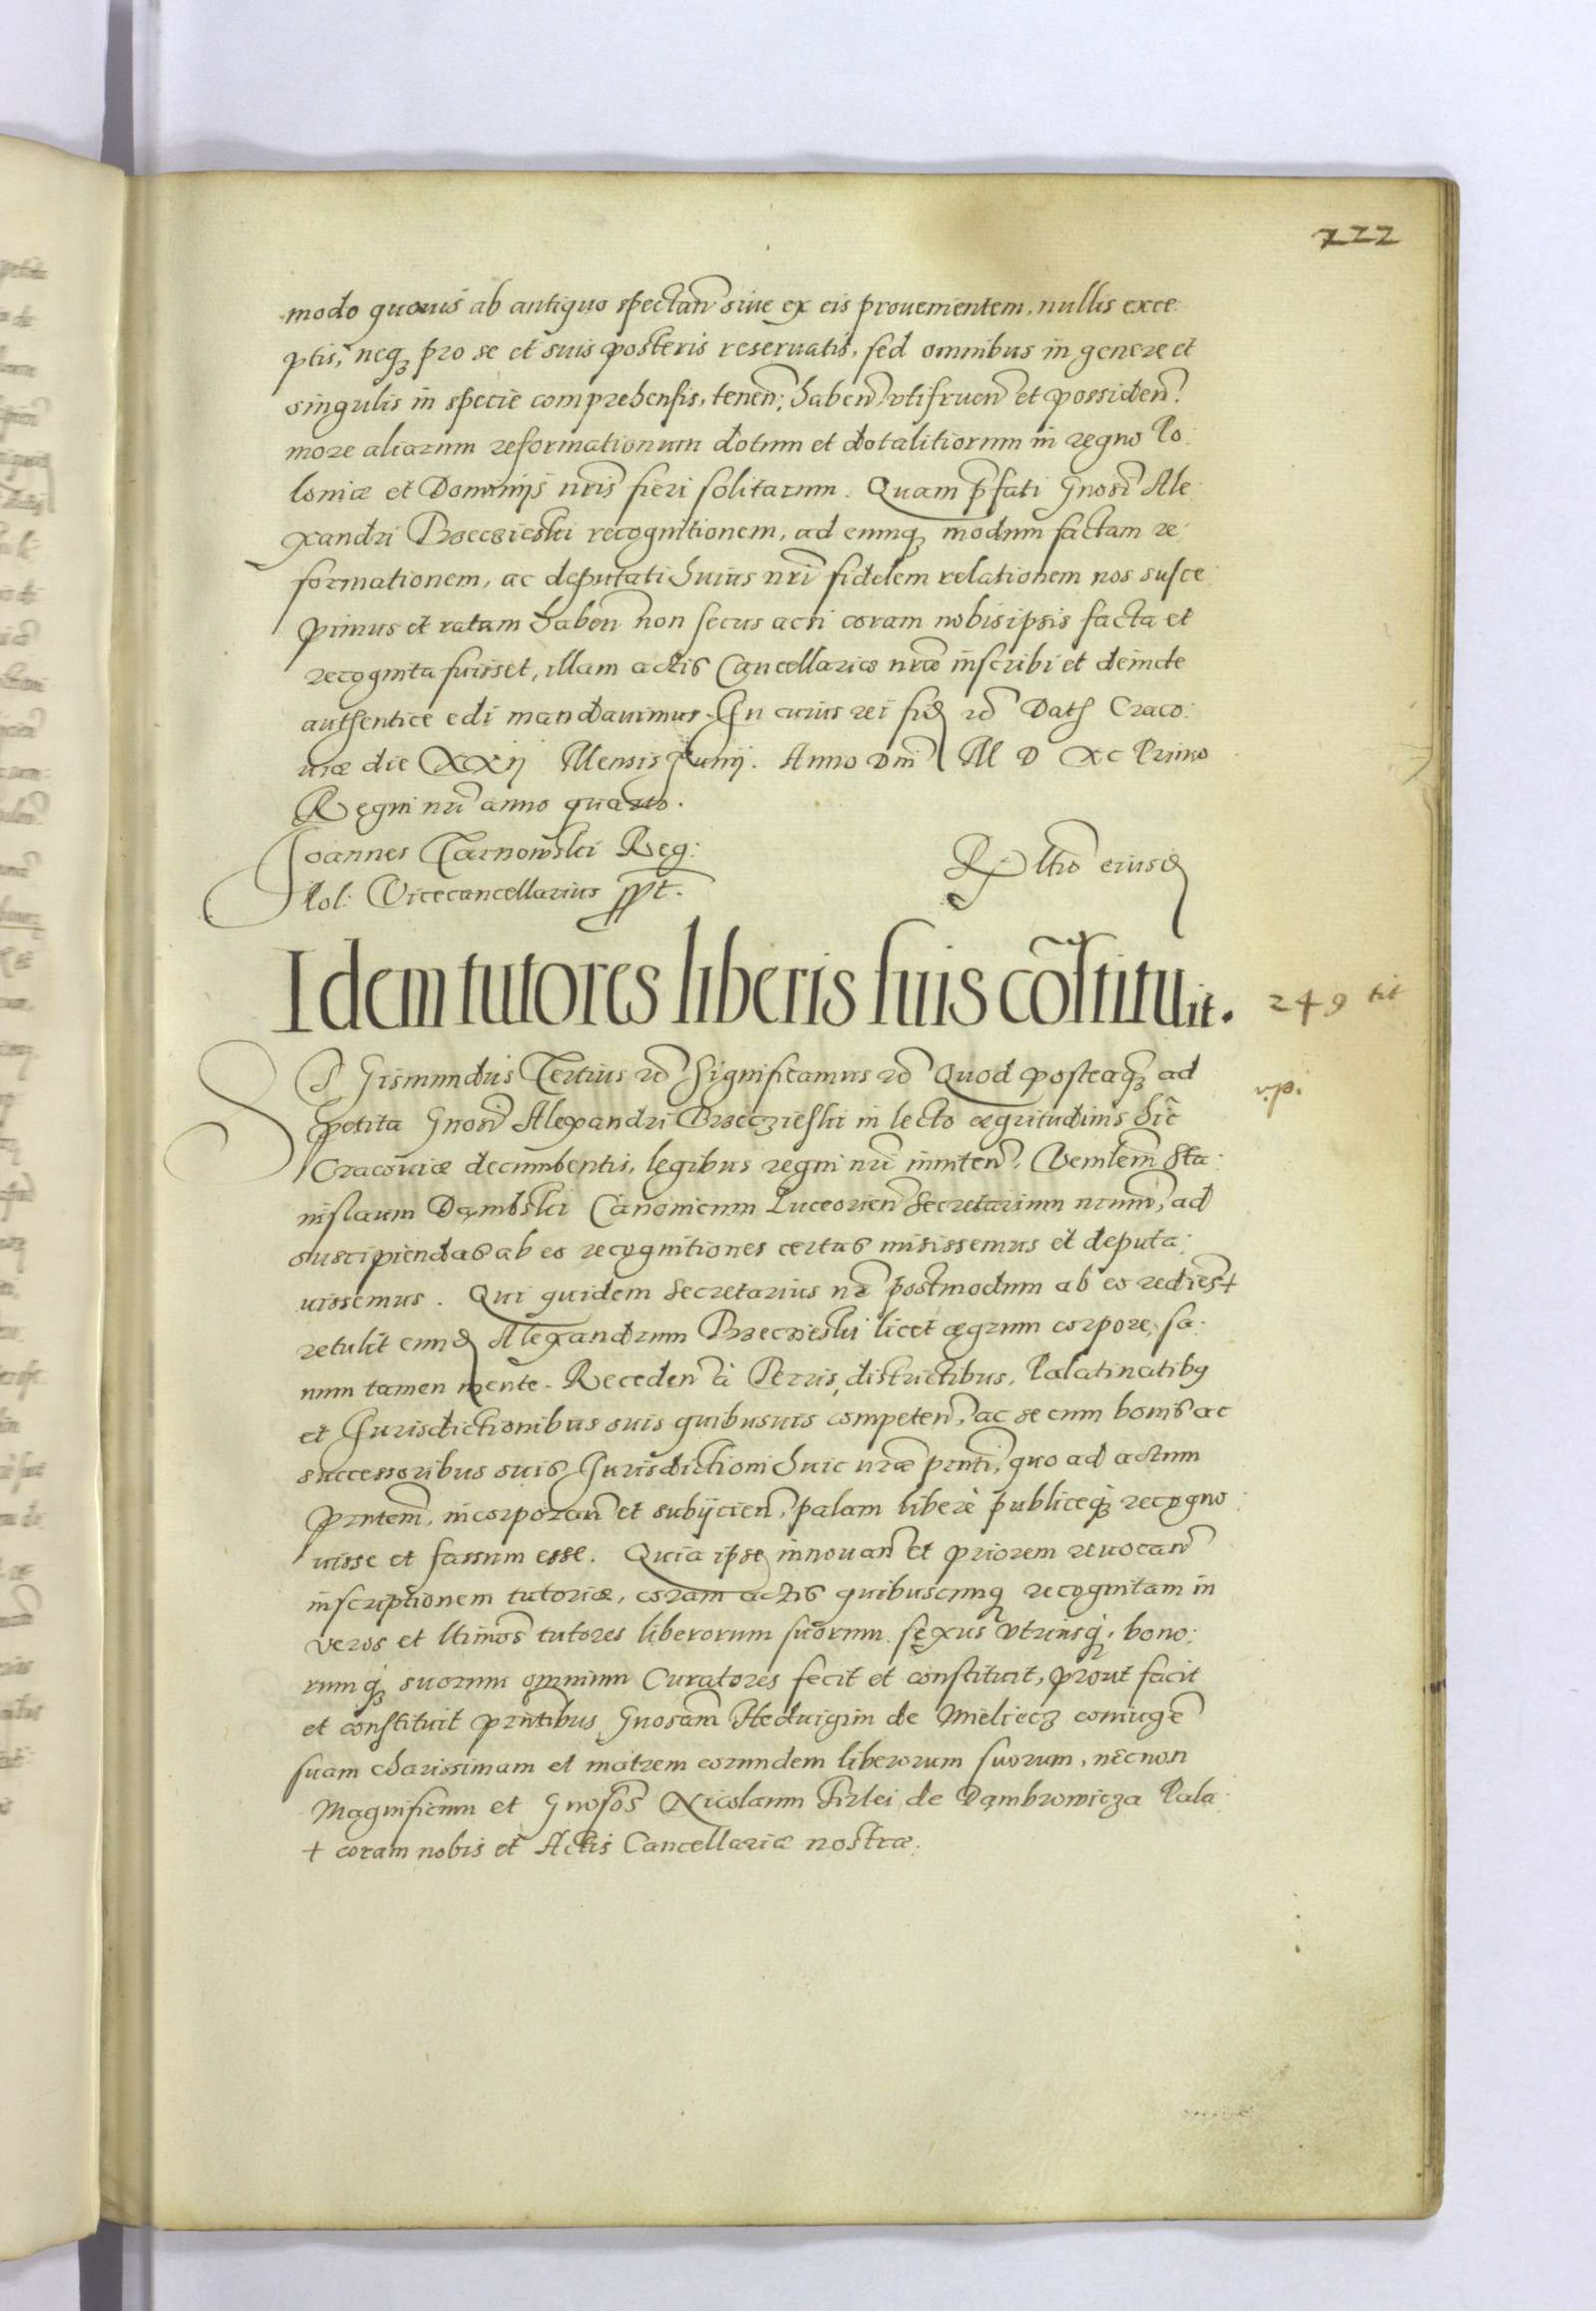 722
modo quouis ab antiquo spectan̄ siue ex eis prouenientem, nullis exce:
ptis, neqꝫ pro se et suis posteris reseruatis, sed omnibus in genere et
singulis in specie comprehensis, tenen̄, haben̄, vtifruen̄ et possiden̄.
more aliarum reformationum dotum et dotalitiorum in regno Po:
loniæ et Dominijs nrīs fieri solitarum. Quam p̄fati Gnosī Ale:
xandri Brzeczieski recognitionem, ad eumqꝫ modum factam re:
formationem, ac deputati huius nrī fidelem relationem nos susce:
pimus et ratam haben̄ non secus acsi coram nobis ipsis facta et
recognita fuisset, illam actis Cancellariæ nrāe inscribi et deinde
authentice edi mandauimus. In cuius rei fid rō Dat Craco:
uiæ die XXij Mensis Junij. Anno Dnī M D XC Primo
Regni nrī anno quarto.
Joannes Tarnowski Reg:
Pol: Vicecancellarius sspt.
R ltio eiusd
Idem tutores liberis suis cōstituit.
249 tit
Sigismundus Tertius rō Significamus rō Quod posteaqꝫ ad
v.p.
petita Gnosī Alexandri Brzeczieski in lecto ægritudinis hic
Cracouiæ decumbentis, legibus regni nrī inniten̄, Venlem̄ Sta:
nislaum Dąmbski Canonicum Luceorien̄ Secretarium nrum̄, ad
suscipiendas ab eo recognitiones certas misissemus et deputa:
uissemus. Qui quidem Secretarius nr̄ postmodum ab eo rediens +
retulit eund Alexandrum Brzeczieski licet ægrum corpore, sa:
num tamen mente. Receden̄ à Terris, districtibus, Palatinatibꝰ
et Jurisdictionibus suis quibusuis competen̄, ac se cum bonis ac
successoribus suis Jurisdictioni huic nrāe prnti, quo ad actum
prntem̄, incorporan̄ et subijcien̄, palam liberè publiceqꝫ recogno:
uisse et fassum esse. Quia ipse innouan̄ et priorem reuocan̄
inscriptionem tutoriæ, coram actis quibuscunqꝫ recognitam in
veros et ltimos̄ tutores liberorum suorum sexus vtriusqꝫ, bono:
rumqꝫ suorum omnium Curatores fecit et constituit, prout facit
et constituit prntibus, Gnosam̄ Heduigim de Mieliecz coniugē
suam charissimam et matrem eorundem liberorum suorum, necnon
Magnificum et Gnosos̄ Nicolaum Firlei de Dąmbrowicza Pala:
+ coram nobis et Actis Cancellariæ nostræ.